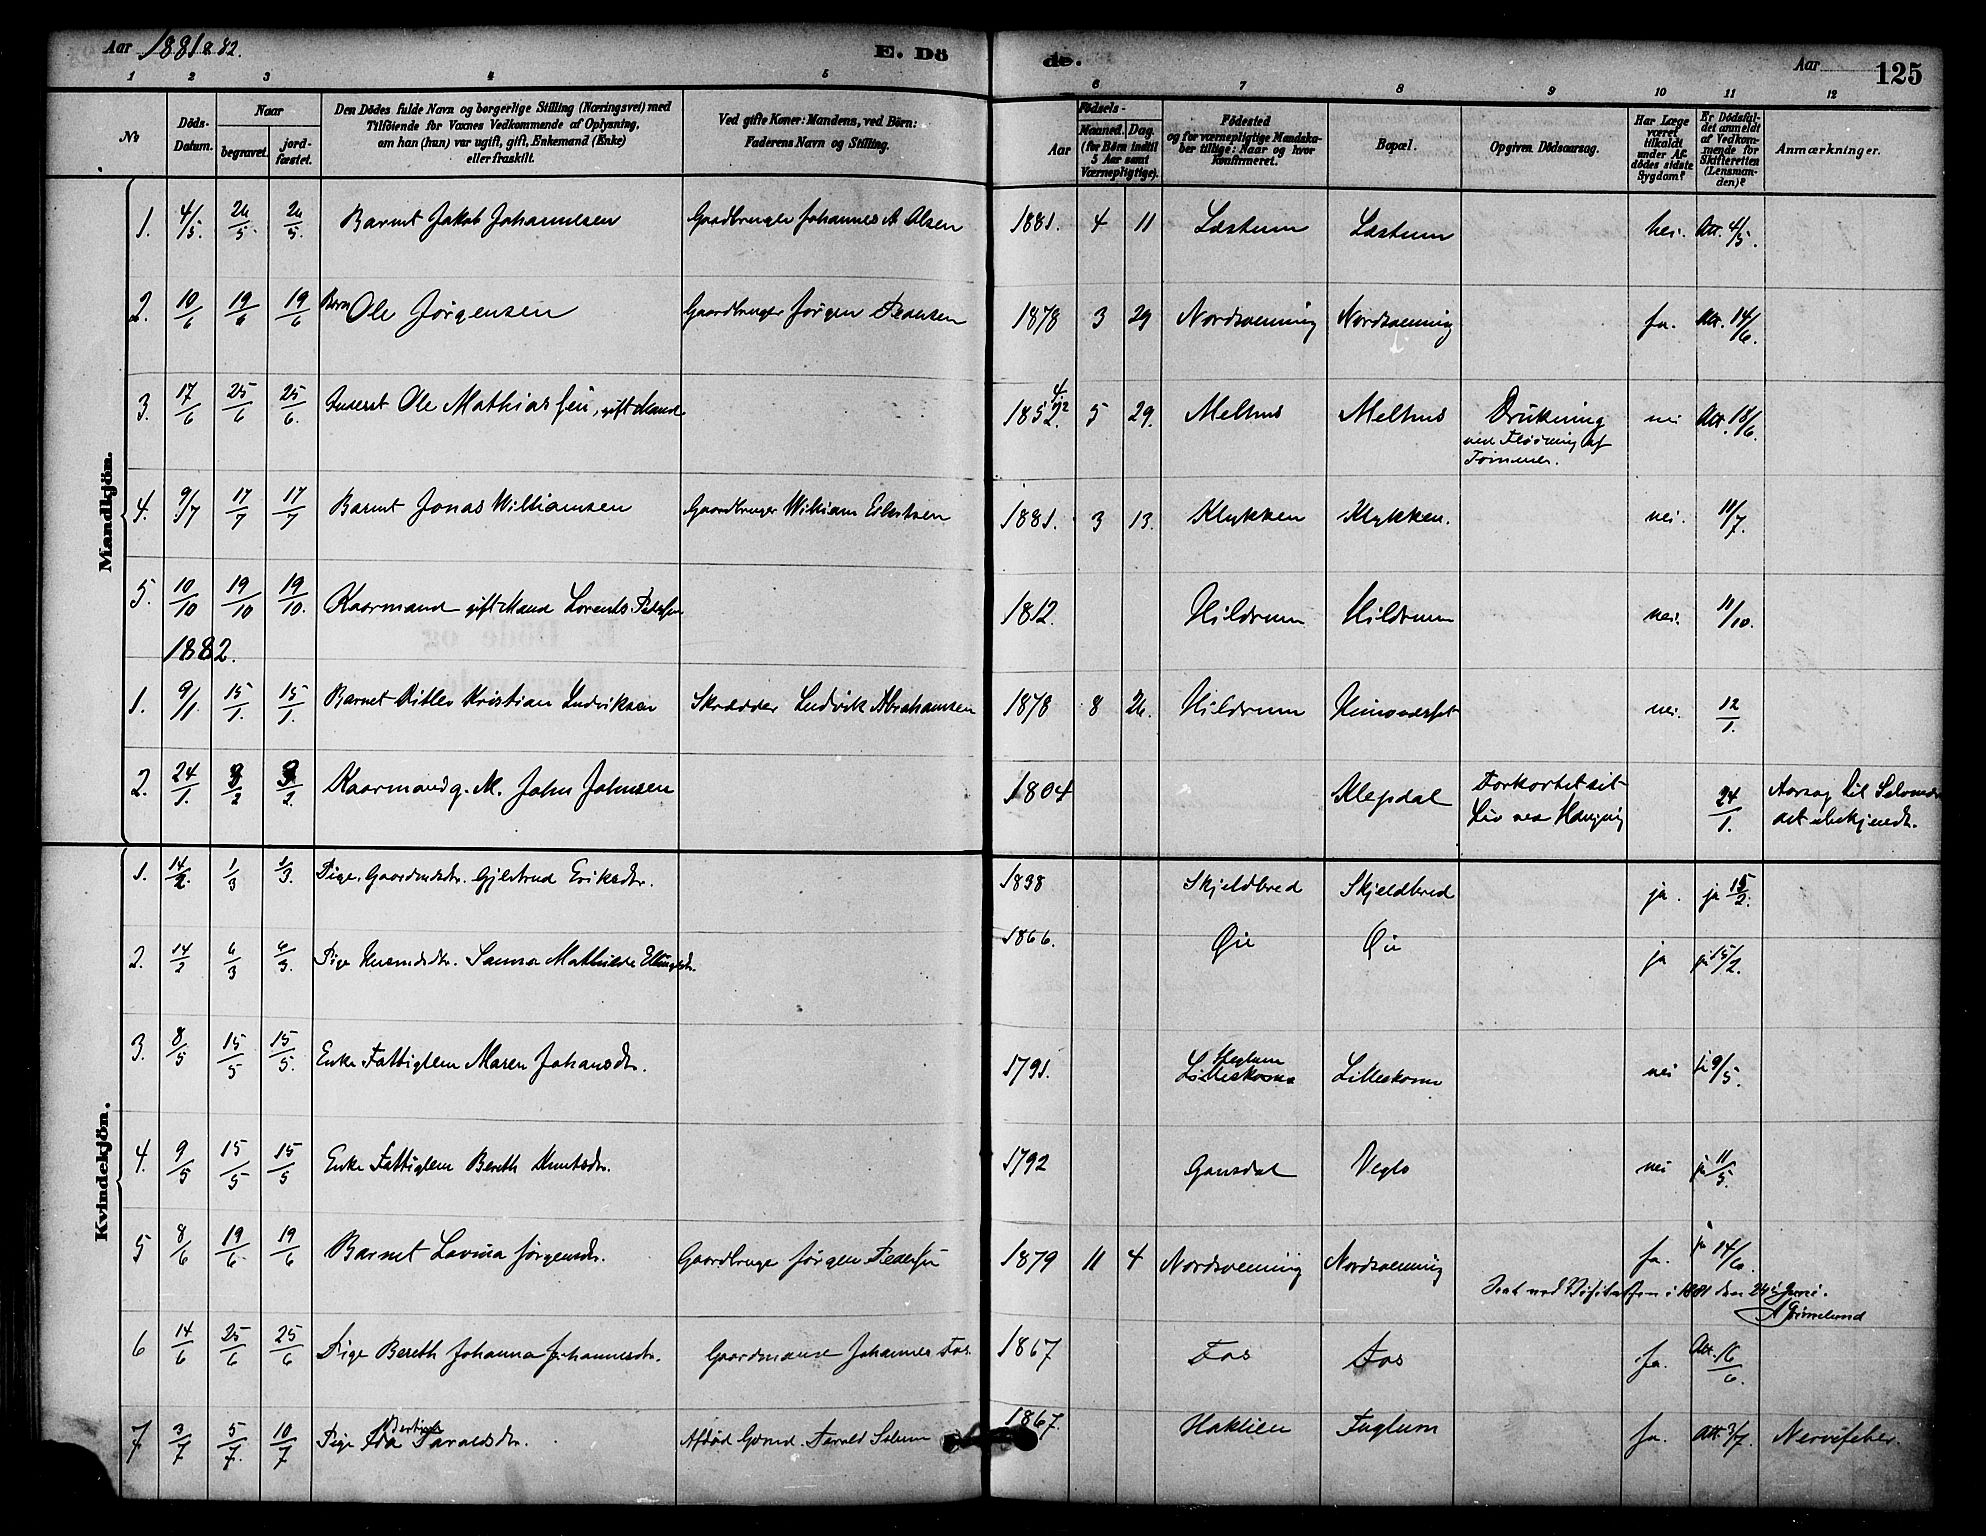 Aar 1881 & 82.
E. Dö
de.
Aar
125
1 2 3 4 5 6 7 8 9 10 11 12
No
Döds-Datum.
Naar
begravet.
jord-fæstet.
Den Dödes fulde Navn og borgerlige Stilling (Næringsvei) med
Tilföiende for Voxnes Vedkommende af Oplysning,
om han (hun) var ugift, gift, Enkemand (Enke)
eller fraskilt.
Ved gifte Koner: Mandens, ved Börn:
Faderens Navn og Stilling.
Födsels-
Aar
Maaned. Dag.
(for Börn indtil
5 Aar samt
Værnepligtige).
Födested
og for værnepligtige Mandska-
ber tillige: Naar og hvor
konfirmeret.
Bopæl.
Opgiven Dödsaarsag.
Har Læge
været
tilkaldt
under Af-
dödes sidste
Sygdom?
Er Dödsfal-
det anmeldt
af Vedkom-
mende for
Skifteretten
(Lensman-
den)?
Anmærkninger.
Mandkjön.
1. 4/5. 26/5. 26/5. Barnet Jakob Johannessen Gaardbruger Johannes A Olsen 1881. 4 11 Læstum Læstum nei. Att. 4/5.
2. 10/6 19/6 19/6 Barn Ole Jørgensen Gaardbruger Jørgen Pedersen 1878 3 29 Nordsvenning Nordsvenning ja. Att. 14/6.
3. 17/6 25/6 25/6. Inderst Ole Mathiassen, gift Mand 1852. 5 29. Melhus Melhus Drukning nei Att. 18/6.
ved Fløtning af
Tømmer.
4. 9/7 17/7 17/7 Barnet Jonas Williamsen Gaardbruger William Eilertsen 1881. 3 13. Klykken Klykken. nei. 11/7.
5. 10/10 19/10 19/10. Kaarmand gift Mand Lorents Pedersen 1812. Hildrum Hildrum nei. 11/10.
1882.
1. 9/1. 15/1. 15/1. Barnet Ditlev Kristian Ludviksen Skrædder Ludvik Abrahamsen 1878 8 26. Hildrum nei. 12/1.
2. 24/1. Kaarmand g. M. John Johnsen 1804 Klepdal Forkortet sit 24/1. Aarsag til Selvmor
Liv ved Hængning det ubekjendt.
Kvindekjön.
1. 14/2. 1/3 1/3. Pige, Gaardmdstr. Gjertrud Eriksdtr. 1838 Skjeldbred Skjeldbred ja. ja 15/2.
2. 14/2 6/3 6/3. Pige Husmdsdtr. Mathilde 1866. Øie Øie ja ja 15/2.
3. 8/5 15/5 15/5. Enke Fattiglem Maren Johansdtr. 1791. Lilleskomo Lilleskomo nei ja 9/5.
4. 9/5 15/5 15/5 Enke Fattiglem Bereth Knutsdtr. 1792 Gansdal Veglo nei ja 11/5.
5 8/6 19/6. 19/6 Barnet Lovina Jørgensdtr. Gaardbruger Jørgen Pedersen 1879 11 4 Nordsvenning Nordsvenning ja. ja 14/6.
Seet ved Visitatsen i 1881 den 24 Juni.
Grimelund
6 14/6 25/6 25/6 Pige Bereth Johanna Johannesdtr. Gaardmand Johannes Fos. 1867 Fos Fos ja. Att. 16/6.
7 3/7 5/7. 10/7 Pige Ida Taraldsdtr. Afdød Gmd. Tarald Solum 1867. Haklien Fuglum ja. Att. 3/7. Nervefeber.